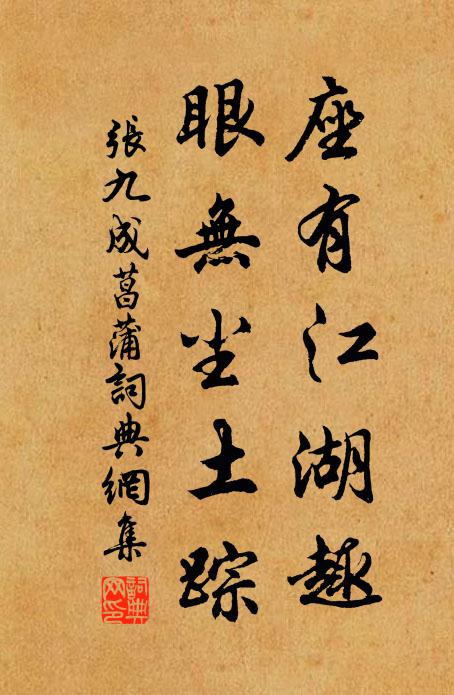 座有江湖趣
眼無尘土踪
張九成菖蒲詞典網集
詞典网印